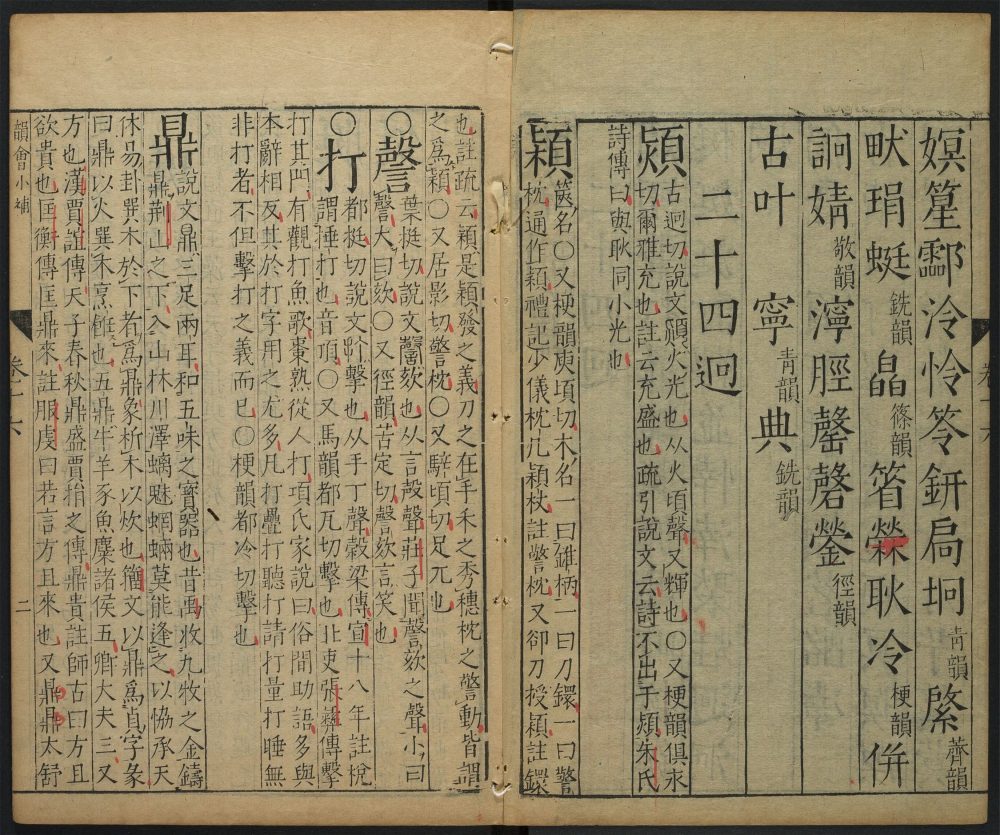 嫇篂酃泠怜笭鈃扃坰青韻綮薺韻
畎琄蜓銑韻皛篠韻箵𤇾耿冷梗韻倂
詗婧敬韻濘脛罄磬鎣徑韻
古叶 寧青韻典銑韻
二十四迥
熲古迥切說文熲火光也从火頃聲又輝也〇又梗韻俱永
切爾雅充也註云充盛也疏引說文云詩不出于熲朱氏
詩傳曰與耿同小光也
穎筬名〇又梗韻庾頃切木名一曰錐柄一曰刀鐶一曰警
枕通作穎禮記少儀枕几穎杖註警枕又卻刀授穎註鐶
也註疏云穎是穎發之義刀之在手禾之秀穗枕之警動皆謂
之爲穎〇又居影切警枕〇又騂頃切足兀也
〇謦葉挺切說文謦欬也从言殸聲莊子聞謦欬之聲小曰
謦大曰欬〇又徑韻苦定切謦欬言笑也
〇打都挺切說文打擊也从手丁聲穀梁傳宣十八年註梲
謂捶打也音頂〇又馬韻都瓦切擊也北史張彝傳擊
打其門有觀打魚歌棗熟從人打項氏家說曰俗間助語多與
本辭相反其於打字用之尤多凡打疊打聽打請打量打睡無
非打者不但擊打之義而已〇梗韻都冷切擊也
鼎說文鼎三足兩耳和五味之寶器也昔禹收九牧之金鑄
鼎荆山之下入山林川澤螭魅蝄蜽莫能逢之以協承天
休易卦巽木於下者爲鼎象析木以炊也籀文以鼎爲貞字彖
曰鼎以火巽木烹飪也五鼎牛羊豕魚麋諸侯五卿大夫三又
方也漢賈誼傳天子春秋鼎盛賈捐之傳鼎貴註師古曰方且
欲貴也匡衡傳匡鼎來註服虔曰若言方且來也又鼎鼎太舒
韻會小補
卷十六
二